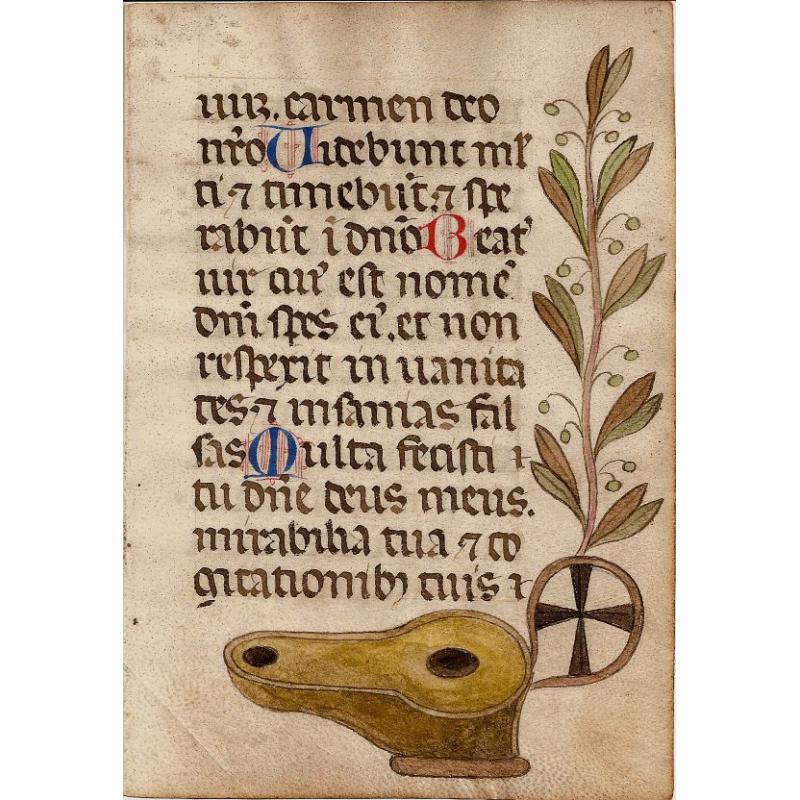 uuꝫ. carmen deo
nr̃o Uidebunt ml̾
ti ⁊ timebũt ⁊ spe
rabũt ĩ dño Beat᾽
uir cui᾽ est nomẽ
dñi spes ei᾽. et non
respexit in uanita
tes ⁊ insanias fal
sas Multa fecisti
tu dñe deus meus.
mirabilia tua ⁊ co
gitationibꝫ tuis